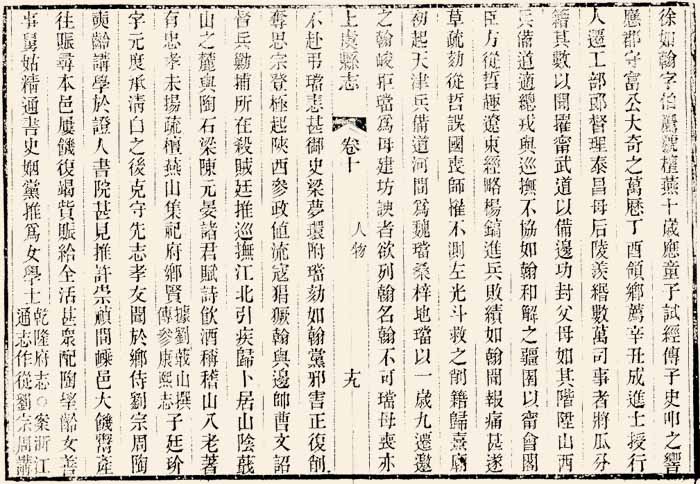 徐如翰字伯鷹號檀燕十歲應童子試經傳子史叩之響
應郡守富公大奇之萬厯丁酉領鄉薦辛丑成進士授行
人遷工部郎督理泰昌母后陵羨緡數萬司事者將瓜分
籍其數以聞擢甯武道以備邊功封父母如其階陞山西
兵備道適總戎與巡撫不協如翰和解之疆圉以甯會閣
臣方從哲趣遼東經略楊鎬進兵敗績如翰聞報痛甚遂
草疏劾從哲誤國喪師擢不測左光斗救之削籍歸熹廟
初起天津兵備道河間為魏璫桑梓地璫以一歲九遷邀
之翰峻拒璫為母建坊諛者欲列翰名翰不可璫母喪亦
上虞縣志
卷十
人物
十九
不赴弔璫志甚御史梁夢環附璫劾如翰黨邪害正復削
奪思宗登極起陝西參政值流寇猖獗翰與邊帥曹文詔
督兵勦捕所在殺賊廷推巡撫江北引疾歸卜居山陰蕺
山之麓與陶石梁陳元晏諸君賦詩飲酒稱稽山八老著
有忠孝未揚疏檀燕山集祀府鄉賢
據劉蕺山撰
傳參康熙志
子廷玠
字元度承淸白之後克守先志孝友聞於鄉侍劉宗周陶
奭齡講學於證人書院甚見推許崇禎間嵊邑大饑鬻產
往賑尋本邑屢饑復竭貲賑給全活甚眾配陶奭齡女善
事舅姑精通書史姻黨推為女學士
乾隆府志○案浙江
通志作從劉宗周講